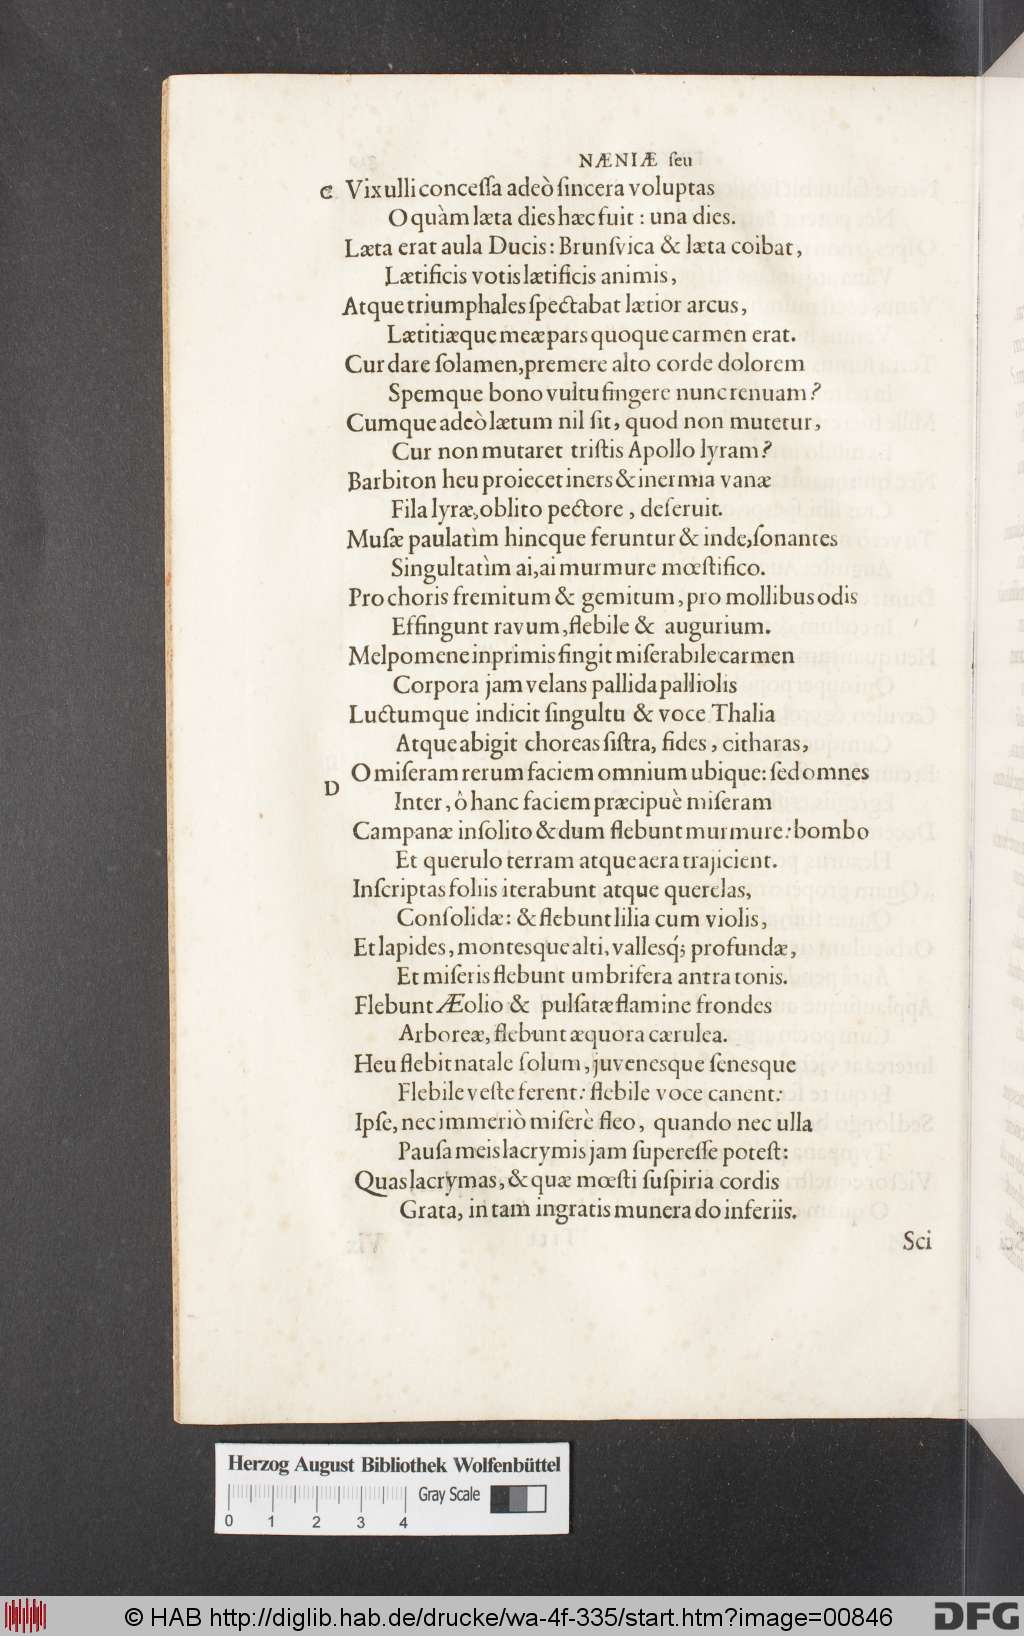 NÆNIÆ ſeu
C Vix ulli conceſſa adeò ſincera voluptas
O quàm læta dies hæc fuit : una dies.
Læta erat aula Ducis: Brunſvica & læta coibat,
Lætificis votis lætificis animis,
Atque triumphales ſpectabat lætior arcus,
Lætitiæque meæ pars quoque carmen erat.
Cur dare ſolamen, premere alto corde dolorem
Spemque bono vultu fingere nunc renuam?
Cumque adeò lætum nil ſit, quod non mutetur,
Cur non mutaret triſtis Apollo lyram?
Barbiton heu proiecet iners & inermia vanæ
Fila lyræ, oblito pectore, deſeruit.
Muſæ paulatìm hincque feruntur & inde, ſonantes
Singultatìm ai, ai murmure mœſtifico.
Pro choris fremitum & gemitum, pro mollibus odis
Effingunt ravum, flebile & augurium.
Melpomene inprimis fingit miſerabile carmen
Corpora jam velans pallida palliolis
Luctumque indicit ſingultu & voce Thalia
Atque abigit choreas ſiſtra, fides, citharas,
O miſeram rerum faciem omnium ubique: ſed omnes
D Inter, ô hanc faciem præcipuè miſeram
Campanæ inſolito & dum flebunt murmure: bombo
Et querulo terram atque aera trajicient.
Inſcriptas foliis iterabunt atque querelas,
Conſolidæ: & flebunt lilia cum violis,
Et lapides, montesque alti, vallesq́; profundæ,
Et miſeris flebunt umbrifera antra tonis.
Flebunt Æolio & pulſatæ flamine frondes
Arboreæ, flebunt æquora cærulea.
Heu flebit natale ſolum, juvenesque ſenesque
Flebile veſte ferent: flebile voce canent:
Ipſe, nec immeriò miſerè fleo, quando nec ulla
Pauſa meis lacrymis jam ſupereſſe poteſt:
Quas lacrymas, & quæ mœſti ſuſpiria cordis
Grata, in tam ingratis munera do inferiis.
Sci
Herzog August Bibliothek Wolfenbüttel
Gray Scale
0 1 2 3 4
© HAB http://diglib.hab.de/drucke/wa-4f-335/start.htm?image=00846
DFG